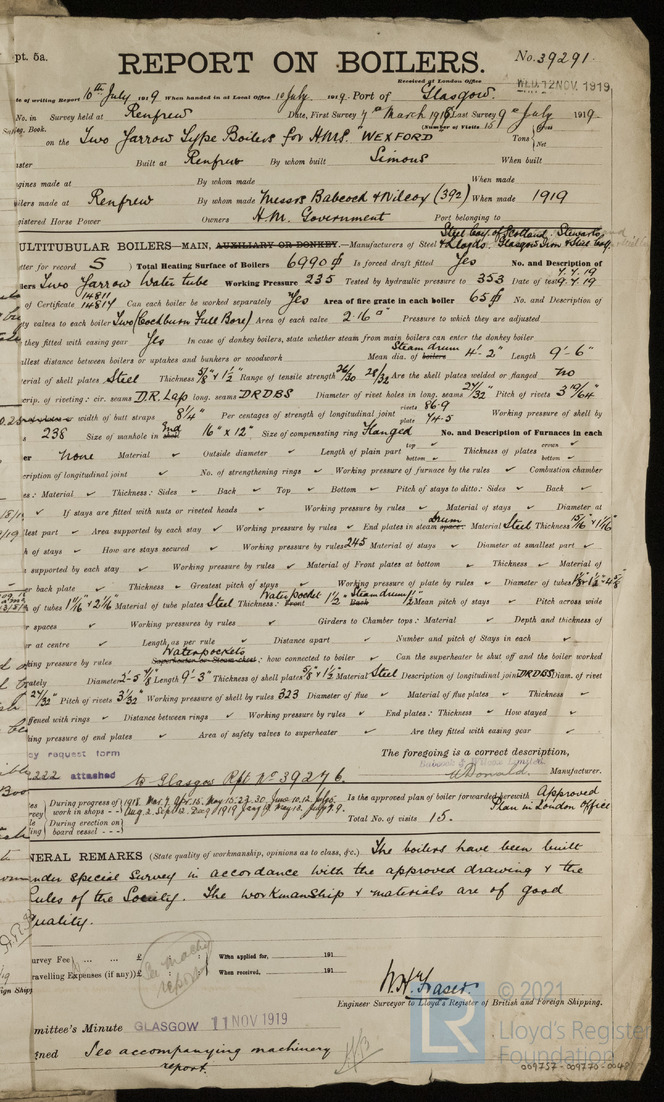 pt. 5a.
REPORT ON BOILERS.
No. 39291
Received at London Office WED. 12 NOV. 1919
te of writing Report 10th July 1919 When handed in at Local Office 10 July 1919 Port of Glasgow.
No. in Survey held at Renfrew Date, First Survey 7th March 1918 Last Survey 9th July 1919
Book. (Number of Visits 15)
on the Two Yarrow Type Boilers for H.M.S. "WEXFORD" Tons Gross Net
aster Built at Renfrew By whom built Simons When built
ngines made at By whom made When made
oilers made at Renfrew By whom made Messrs Babcock & Wilcox (392) When made 1919
gistered Horse Power Owners H.M. Government Port belonging to
ULTITUBULAR BOILERS—MAIN, AUXILIARY OR DONKEY.—Manufacturers of Steel Steel Coy. of Scotland. Stewarts & Lloyds. Glasgow Iron & Steel Coy.
tter for record S Total Heating Surface of Boilers 6990 Is forced draft fitted Yes No. and Description of
lers Two Yarrow Water tube Working Pressure 235 Tested by hydraulic pressure to 353 Date of test 7.7.19 9.7.19
of Certificate 14811 14817 Can each boiler be worked separately Yes Area of fire grate in each boiler 65 No. and Description of
ty valves to each boiler Two (Cockburn Full Bore) Area of each valve 2.16" Pressure to which they are adjusted
they fitted with easing gear Yes In case of donkey boilers, state whether steam from main boilers can enter the donkey boiler
allest distance between boilers or uptakes and bunkers or woodwork Mean dia. of boilers Steam drum 4'-2" Length 9'-6"
terial of shell plates Steel Thickness 5/8" & 1 1/2" Range of tensile strength 26/30 28/32 Are the shell plates welded or flanged no
crip. of riveting: cir. seams D.R. Lap long. seams DRDBS Diameter of rivet holes in long. seams 27/32" Pitch of rivets 3 19/64"
width of butt straps 8 1/4" Per centages of strength of longitudinal joint rivets 86.9 plate 74.5 Working pressure of shell by
s 238 Size of manhole in shell End 16" x 12" Size of compensating ring Flanged No. and Description of Furnaces in each
er None Material ✓ Outside diameter ✓ Length of plain part top bottom ✓ Thickness of plates crown bottom ✓
cription of longitudinal joint ✓ No. of strengthening rings ✓ Working pressure of furnace by the rules ✓ Combustion chamber
es: Material ✓ Thickness: Sides ✓ Back ✓ Top ✓ Bottom ✓ Pitch of stays to ditto: Sides ✓ Back ✓
If stays are fitted with nuts or riveted heads ✓ Working pressure by rules ✓ Material of stays ✓ Diameter at
lest part ✓ Area supported by each stay ✓ Working pressure by rules ✓ End plates in steam space: drum Material Steel Thickness 15/16" & 1 1/16"
h of stays ✓ How are stays secured ✓ Working pressure by rules 245 Material of stays ✓ Diameter at smallest part ✓
a supported by each stay ✓ Working pressure by rules ✓ Material of Front plates at bottom ✓ Thickness ✓ Material of
er back plate ✓ Thickness ✓ Greatest pitch of stays ✓ Working pressure of plate by rules ✓ Diameter of tubes
of tubes 1 11/16" & 2 1/16" Material of tube plates Steel Thickness: Front Water pocket 1 1/2" Back Steam drum 1 1/2" Mean pitch of stays ✓ Pitch across wide
er spaces ✓ Working pressures by rules ✓ Girders to Chamber tops: Material ✓ Depth and thickness of
er at centre ✓ Length as per rule ✓ Distance apart ✓ Number and pitch of Stays in each ✓
king pressure by rules ✓ Superheater or Steam chest; Water pockets how connected to boiler ✓ Can the superheater be shut off and the boiler worked
rately Diameter 2'-5 7/8" Length 9'-3" Thickness of shell plates 5/8" & 1 1/2" Material Steel Description of longitudinal joint DRDBS Diam. of rivet
27/32" Pitch of rivets 3 1/32" Working pressure of shell by rules 323 Diameter of flue ✓ Material of flue plates ✓ Thickness ✓
ffened with rings ✓ Distance between rings ✓ Working pressure by rules ✓ End plates: Thickness ✓ How stayed ✓
king pressure of end plates ✓ Area of safety valves to superheater ✓ Are they fitted with easing gear ✓
cy request form
222 attached to Glasgow Rpt No 39276.
The foregoing is a correct description,
Donald. Manufacturer.
During progress of work in shops - - 1918. Mar. 7. Apr. 15. May 15. 23. 30. June 10. 12. July 5. Aug. 2. Sept. 12. Dec. 9 1919
During erection on board vessel - - -
Is the approved plan of boiler forwarded herewith Approved Plan in London Office
Total No. of visits 15.
NERAL REMARKS (State quality of workmanship, opinions as to class, &c.) The boilers have been built
under Special Survey in accordance with the approved drawing & the
Rules of the Society. The workmanship & materials are of good
quality.
urvey Fee ... ... £ : : When applied for, 191
ravelling Expenses (if any) £ : : When received, 191
See machy report
W.H. Fraser.
Engineer Surveyor to Lloyd's Register of British and Foreign Shipping.
mmittee's Minute GLASGOW 11 NOV 1919
gned See accompanying machinery
report.
© 2021
LR Lloyd's Register
Foundation
009757-009770-0048